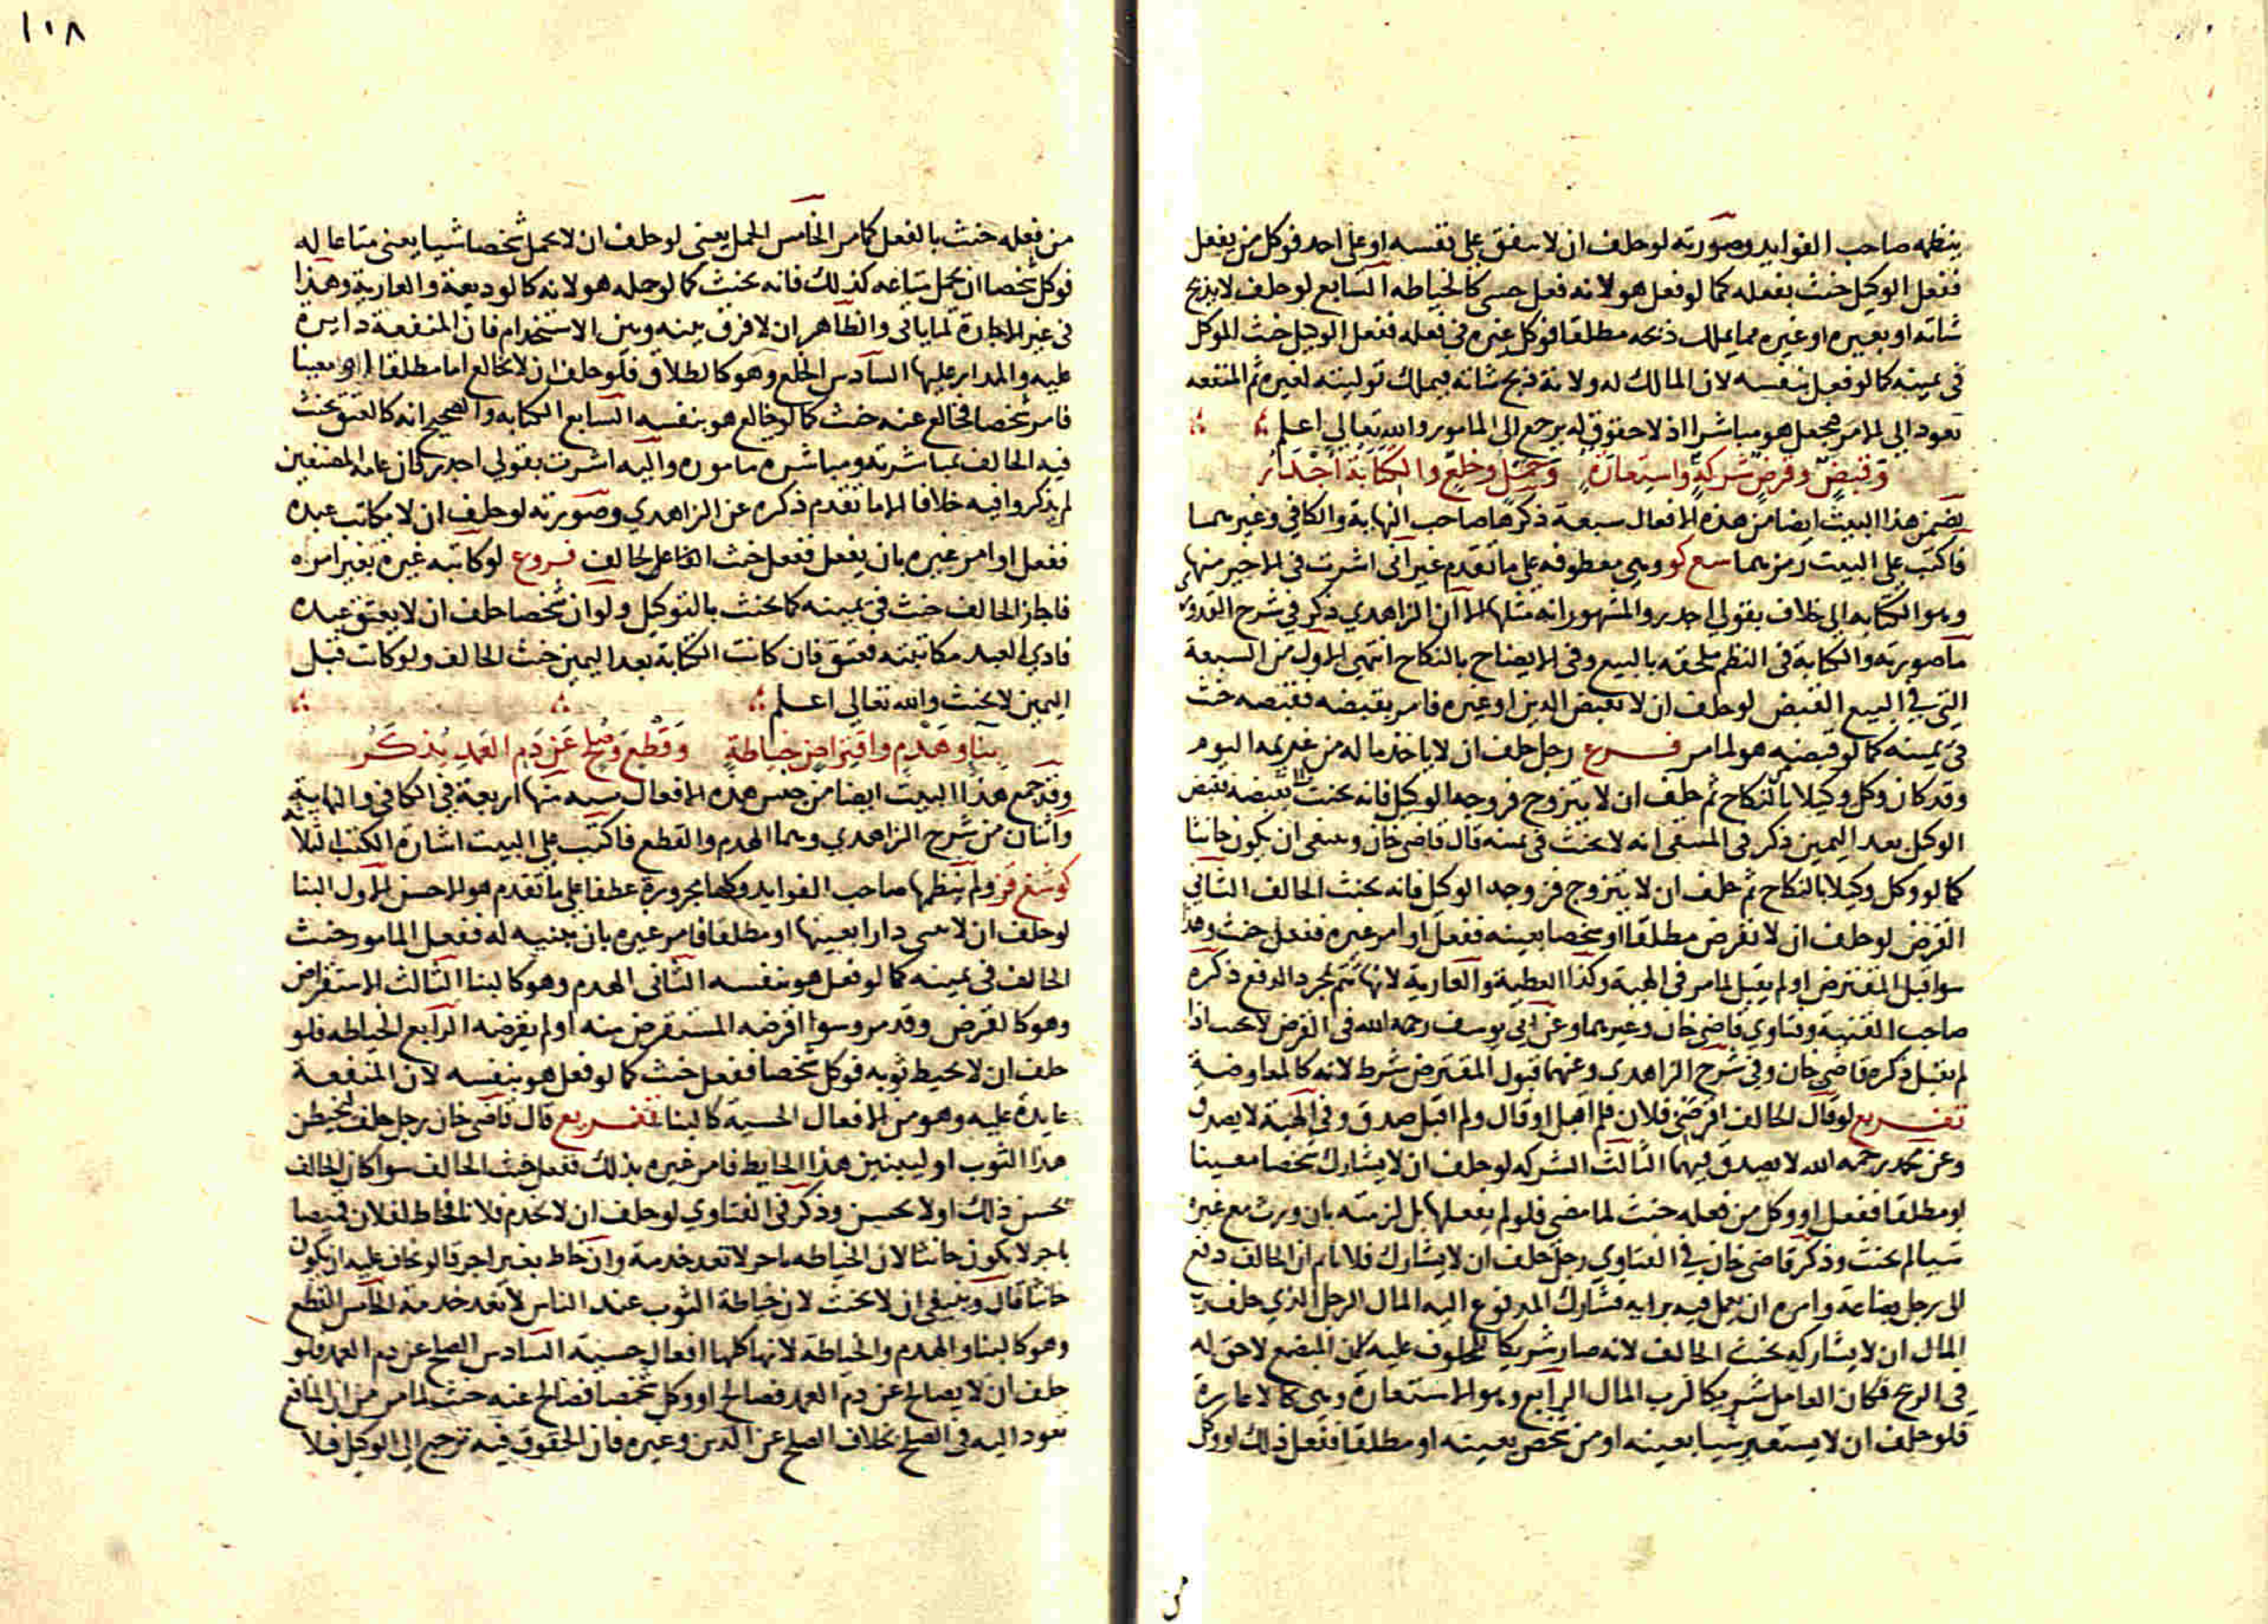 ينظمه صاحب الفوايد وصورته لو حلف ان لا ينفق على نفسه او على احد فوكل من يفعل
ففعل الوكيل حنث بفعله كما لو فعل هو لانه فعل حسي كالخياطه السابع لو حلف لا يذبح
شاته او بعيره او غيره مما يملك ذبحه مطلقا فوكل غيره في فعله ففعل الوكيل حنث الموكل
في يمينه كما لو فعل بنفسه لان المالك له ولاية ذبح شاته فيملك توليته لغيره ثم المنفعه
تعود الى الامر فيجعل هو مباشرا اذ لا حقوق له يرجع الى المامور والله تعالى اعلم
وقبض وقرض شركة واستعارة وحمل وخلع والكتابة اجدر
يضمن هذا البيت ايضا من هذه الافعال سبعة ذكرها صاحب النهاية والكافي وغيرهما
فاكتب على البيت رمزهما سع كو وهي معطوفه على ما تقدم غير اني اشرت في الاخير منها
وهو الكتابه الى خلاف بقولي اجدر والمشهور انه مثلها الا ان الزاهدي ذكر في شرح القدوري
ما صورته والكتابة في النظم ملحقه بالبيع وفي الايضاح بالنكاح انتهى الاول من السبعة
التي في البيع القبض لو حلف ان لا يقبض الدين او غيره فامر بقبضه فقبضه حنث
في يمينه كما لو قبضه هو لما مر فرع رجل حلف ان لا ياخذ ما له من غريمه اليوم
وقد كان وكل وكيلا بالنكاح ثم حلف ان لا يتزوج فزوجه الوكيل فانه يحنث بقبضه فقبض
الوكيل بعد اليمين ذكر في المنتقى انه لا يحنث في يمينه قال قاضي خان وينبغي ان يكون حانثا
كما لو وكل وكيلا بالنكاح ثم حلف ان لا يتزوج فزوجه الوكيل فانه يحنث الحالف الثاني
القرض لو حلف ان لا يقرض مطلقا او شخصا بعينه ففعل او امر غيره ففعل حنث وهذا
سوا قبل المقترض او لم يقبل لما مر في الهبة وكذا العطية والعارية لانها تتم بمجرد الدفع ذكره
صاحب القنية وفتاوي قاضي خان وغيرهما وعن ابي يوسف رحمه الله في القرض لا يحنث اذا
لم يقبل ذكره قاضي خان وفي شرح الزاهدي وعنهما قبول المقترض شرط لانه كالمعاوضة
تفريع لو قال الحالف اقرضني فلان فلم اقبل او قال ولم اقبل صدق وفي الهبة لا يصدق
وعن محمد رحمه الله لا يصدق فيهما الثالث الشركه لو حلف ان لا يشارك شخصا معينا
او مطلقا ففعل او وكل من فعله حنث لما مضى فلو لم يفعلها بل لزمته بان ورث مع غيره
شيا لم يحنث وذكر قاضي خان في الفتاوي رجل حلف ان لا يشارك فلانا ثم ان الحالف دفع
الى رجل بضاعة وامره ان يعمل فيه برايه فشارك المدفوع اليه المال الرجل الذي حلف رب
المال ان لا يشاركه يحنث الحالف لانه صار شريكا للمحلوف عليه لان المبضع لا حق له
في الربح فكان العامل شريكا لرب المال الرابع وهو الاستعارة وهي كالاعارة
فلو حلف ان لا يستعير شيا بعينه او من شخص بعينه او مطلقا ففعل ذلك او وكل
من
١٠٨
من فعله حنث بالفعل كما مر الخامس الحمل يعني لو حلف ان لا يحمل شخصا شيا يعني متاعا له
فوكل شخصا ان يحمل متاعه كذلك فانه يحنث كما لو حمله هو لانه كالوديعة والعارية وهذا
في غير الاجارة لما ياتي والظاهر ان لا فرق بينه وبين الاستخدام فان المنفعة دايرة
عليه والمدار عليها السادس الخلع وهو كالطلاق فلو حلف ان لا يخالع اما مطلقا او معينا
فامر شخصا فخالع عنه حنث كما لو خالع هو بنفسه السابع الكتابه والصحيح انه كالعتق يحنث
فيه الحالف بمباشرته ومباشرة ماموره واليه اشرت بقولي اجدر فان عامة المصنفين
لم يذكروا فيه خلافا الا ما تقدم ذكره عن الزاهدي وصورته لو حلف ان لا يكاتب عبده
ففعل او امر غيره بان يفعل ففعل حنث الفاعل الحالف فروع لو كاتبه غيره بغير امره
فاجاز الحالف حنث في يمينه كما يحنث بالتوكيل ولو ان شخصا حلف ان لا يعتق عبده
فادي العبد مكاتبته فعتق فان كانت الكتابة بعد اليمين حنث الحالف ولو كانت قبل
اليمين لا يحنث والله تعالى اعلم
بناء وهدم واقتراض خياطة وقطع وصلح عن دم العمد يذكر
وقد جمع هذا البيت ايضا من جنس هذه الافعال ستة منها اربعة في الكافي والنهاية
واثنان من شرح الزاهدي وهما الهدم والقطع فاكتب على البيت اشارة الكتب الثلاثة
كو شغ قز ولم ينظمها صاحب الفوايد وكلها مجرورة عطفا على ما تقدم هو الاحسن الاول البنا
لو حلف ان لا يبني دارا بعينها او مطلقا فامر غيره بان يبنيه له ففعل المامور حنث
الحالف في يمينه كما لو فعل هو بنفسه الثاني الهدم وهو كالبنا الثالث الاستقراض
وهو كالقرض وقد مر وسوا اقرضه المستقرض منه او لم يقرضه الرابع الخياطه فلو
حلف ان لا يخيط ثوبه فوكل شخصا ففعل حنث كما لو فعل هو بنفسه لان المنفعة
عايدة عليه وهو من الافعال الحسية كالبنا تفريع قال قاضي خان رجل حلف ليخيطن
هذا الثوب او ليبنين هذا الحايط فامر غيره بذلك ففعل حنث الحالف سوا كان الحالف
يحسن ذلك او لا يحسن وذكر في الفتاوي لو حلف ان لا يخدم فلانا فخاط لفلان قميصا
باجر لا يكون حانثا لان الخياطه باجر لا تعد خدمة وان خاط بغير اجر قالو يخاف عليه ان يكون
حانثا قال وينبغي ان لا يحنث لان خياطة الثوب عند الناس لا تعد خدمة الخامس القطع
وهو كالبنا والهدم والخياطة لانها كلها افعال حسية السادس الصلح عن دم العمد فلو
حلف ان لا يصالح عن دم العمد فصالح او وكل شخصا فصالح عنه حنث لما مر من ان المنافع
تعود اليه في الصلح بخلاف الصلح عن الدين وغيره فان الحقوق فيه ترجع الى الوكيل فلا